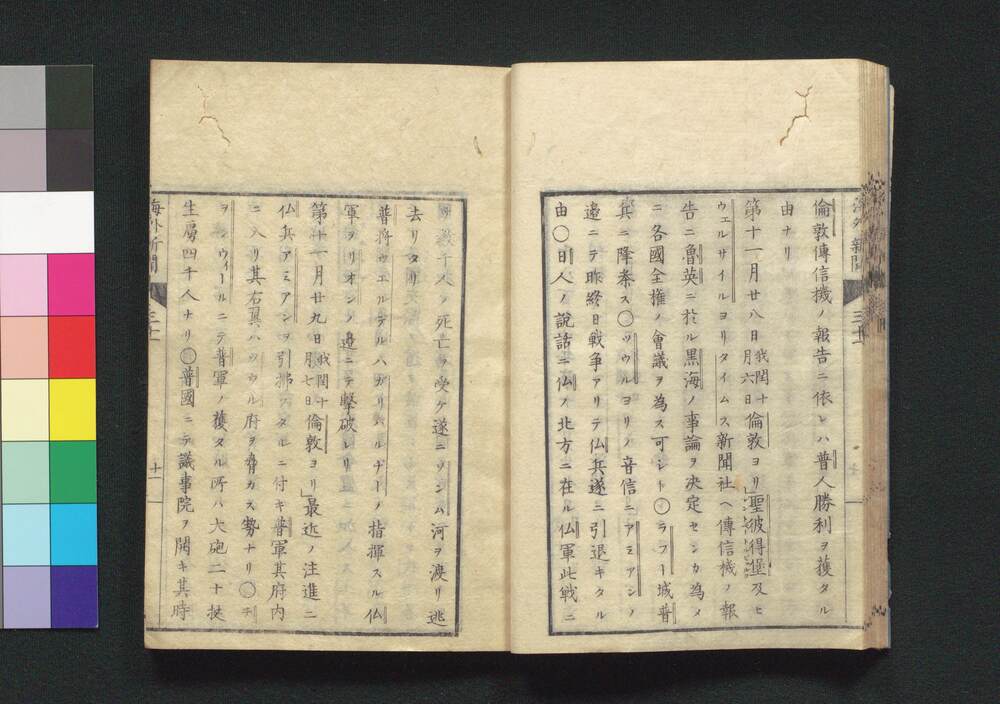 倫敦傳信機ノ報告ニ依レハ普人勝利ヲ獲タル
由ナリ
第十一月廿八日我閏十月六日倫敦ヨリ」聖彼得堡及ヒ
ウェルサイルヨリタイムス新聞社ヘ傳信機ノ報
告ニ魯英ニ於ル黒海ノ事論ヲ決定センカ為メ
ニ各國全權ノ會議ヲ為ス可シト〇ラフー城普
兵ニ降参ス〇ツウルヨリノ音信ニアミアンノ
邉ニテ昨終日戦争アリテ仏兵遂ニ引退キタル
由〇日人ノ説話ニ仏ノ北方ニ在ル仏軍此戦ニ
海外新聞
三十
幾千人ノ死亡ヲ受ケ遂ニソンム河ヲ渡リ逃
去リタリ
普将ウエルデルハガリバルヂーノ指揮スル仏
軍ヲリオンノ邉ニテ撃破レリ
第十一月廿九日我閏十月七日倫敦ヨリ」最近ノ注進ニ
仏兵アミアンヲ引拂ヒタルニ付キ普軍其府内
ニ入リ其右翼ハツウル府ヲ脅カス勢ナリ〇チ
ヲンウィールニテ普軍ノ獲タル所ハ大砲二十挺
生虜四千人ナリ〇普國ニテ議事院ヲ開キ其時
海外新聞
三十
十一